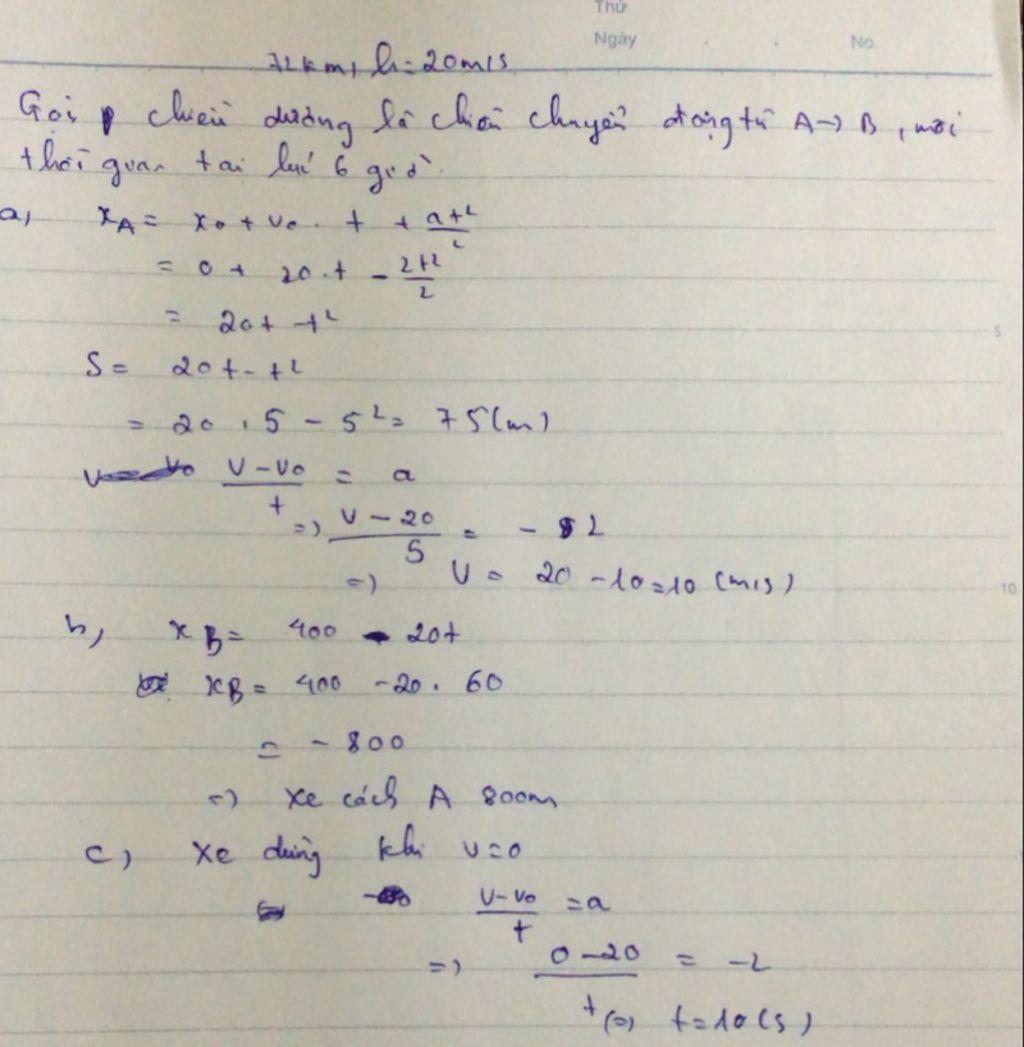 Thứ
Ngày
No.
72km/h=20m/s
Gọi chiều dương là chiều chuyển động từ A→B, mốc
thời gian tại lúc 6 giờ.
a, x_A = x₀ + v₀ . t + at²/2
= 0 + 20.t - 2t²/2
= 20t - t²
S = 20t - t²
= 20 . 5 - 5² = 75(m)
(v-v₀)/t = a
=> (v-20)/5 = -2
=> v = 20 - 10 = 10 (m/s)
b, x_B = 400 - 20t
x_B = 400 - 20. 60
= - 800
=> xe cách A 800m
c, xe dừng khi v=0
(v-v₀)/t = a
=> (0-20)/t = -2
(=) t=10(s)
5
10